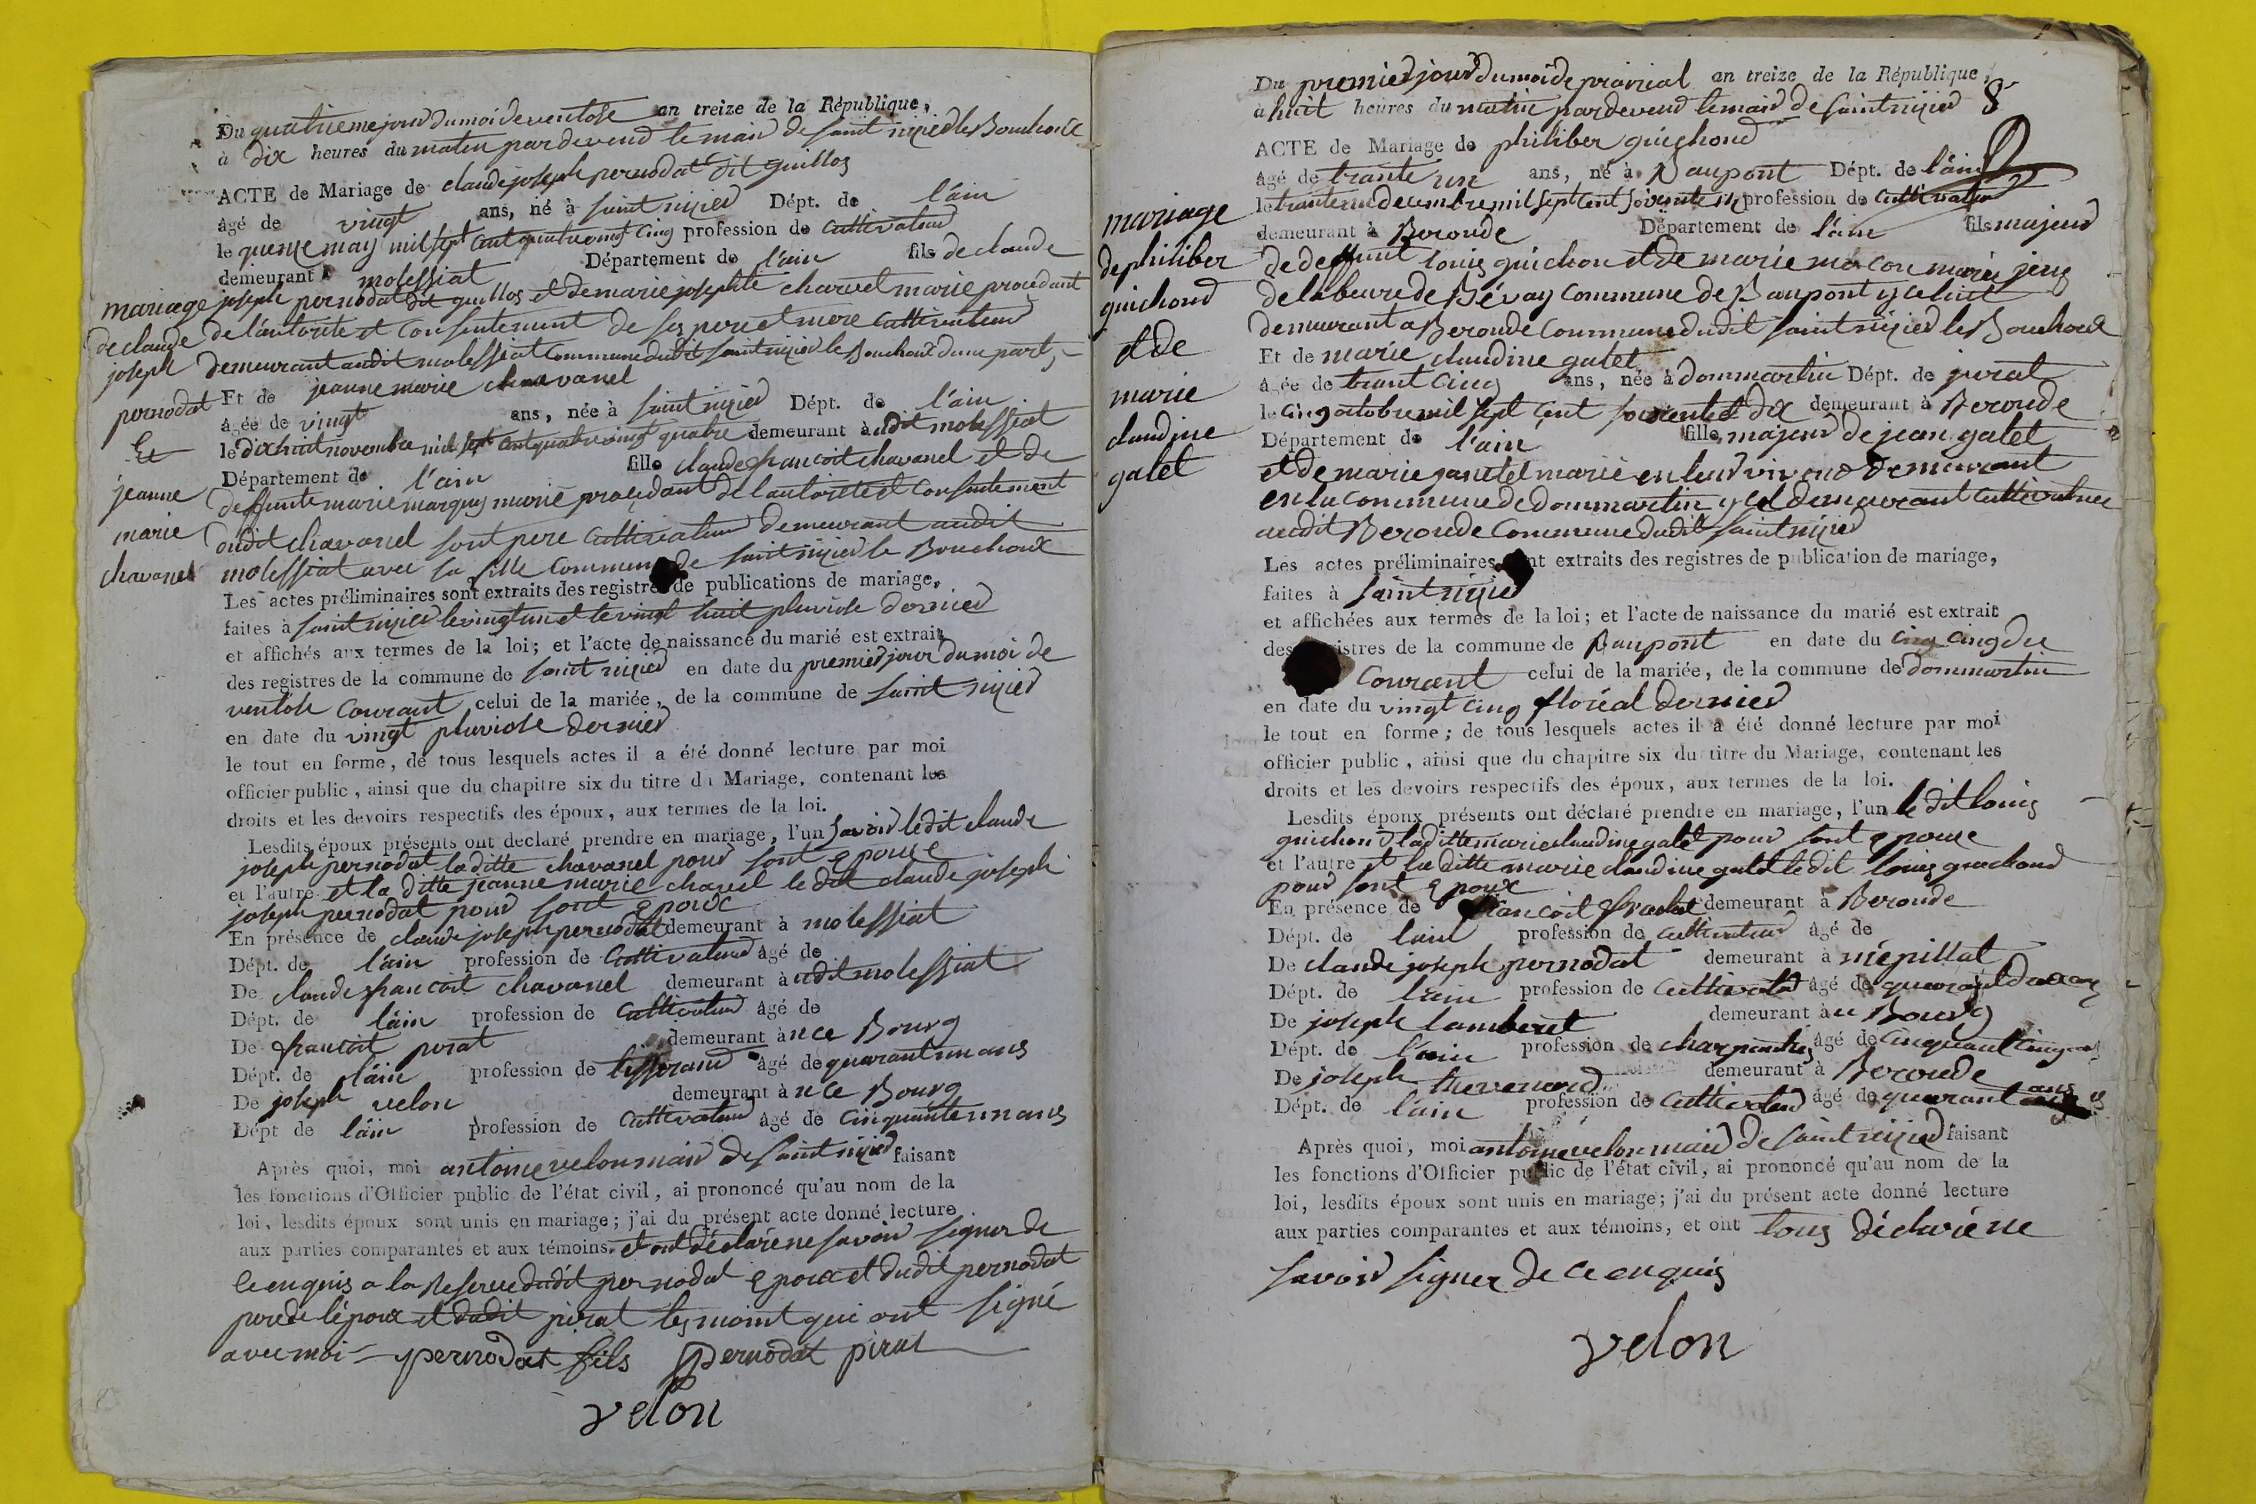 Du quatrieme jour du moi de ventose an treize de la République,
à dix heures du matin pardevend le maid de saint nizied le Bouchoux
ACTE de Mariage de claude joseph pernodat dit guillos
âgé de vingt ans, né à saint nizied Dépt. de l'ain
le quenze may mil sept cent quatrevingt cinq profession de cultivateud
demeurant à molessiat Département de l'ain fils de claude
joseph pernodat dit guillos et de marie josephte charvet marie procedant
de l'autorite et consentement de ses pere et mere cultivateud
demeurant audit molessiat commune dudit saint nizied le Bouchoux d'une part,
mariage
de claude
joseph
pernodat
Et
jeanne
marie
chavanel
Et de jeanne marie chavanel
âgée de vingt ans, née à saint nizied Dépt. de l'ain
le dixhuit novembre mil sept cent quatre vingt quatre demeurant à udit molessiat
Département de l'ain fille claude francoit chavanel et de
deffunte marie marquis marié proçedant de l'autorite et consentement
dudit chavanel sont pere cultivateud demeurant audit
molessiat avec sa fille commune de saint nizied le Bouchoux
Les actes préliminaires sont extraits des registres de publications de mariage,
faites à saint nizied le vingt un et le vingt huit pluviose dernied
et affichés aux termes de la loi; et l'acte de naissance du marié est extrait
des registres de la commune de saint nizied en date du premied jour du moi de
ventose courant celui de la mariée, de la commune de saint nizied
en date du vingt pluviose dernied
le tout en forme, de tous lesquels actes il a été donné lecture par moi
officier public, ainsi que du chapitre six du titre du Mariage, contenant les
droits et les devoirs respectifs des époux, aux termes de la loi.
Lesdits époux présents ont declaré prendre en mariage, l'un savoid ledit claude
joseph pernodat laditte chavanel pour sont epouse
et l'autre et la ditte jeanne marie chavel le dit claude joseph
joseph pernodat pour sont epoux
En présence de claude joseph pernodat demeurant à molessiat
Dépt. de l'ain profession de cultivateud âgé de
De claude francoit chavanel demeurant à udit molessiat
Dépt. de l'ain profession de cultivateud âgé de
De francoit pirat demeurant à u ce Bourg
Dépt. de l'ain profession de tisserand âgé de quarant un ans
De joseph velon demeurant à u ce Bourg
Dépt de l'ain profession de cultivateud âgé de cinquante un ans
Après quoi, moi antoine velon maid de saint nizied faisant
les fonctions d'Officier public de l'état civil, ai prononcé qu'au nom de la
loi, lesdits époux sont unis en mariage; j'ai du présent acte donné lecture
aux parties comparantes et aux témoins, et ont déclaré ne savoid signer de
ce enquis a la Reserve dudit pernodat epoux et dudit pernodat
pere de l'epoux et dudit pirat tesmoint qui ont signé
avec moi pernodat fils pernodat pirat
velon
Du premied jour du moi de prairial an treize de la République,
à huit heures du matin pardevend le maid de saint nizied 8
ACTE de Mariage de philiber guichond
âgé de trante un ans, né à Baupont Dépt. de l'ain
le trante un decembre mil sept cent profession de cultivateud
demeurant à Beroude Département de l'ain fils majeud
de deffunt louis guichon et de marie macon
de Bévay commune de Baupont
demeurant a Beroude commune dudit saint nizied le Bouchoux
mariage
de philiber
guichond
et de
marie
claudine
galet
Et de marie claudine galet
âgée de trant cinq ans, née à dommartin Dépt. de jurat
le cinq octobre mil sept cent soixente et dix demeurant à Beroude
Département de l'ain fille, majeud de jean galet
et de marie marié en leur vivend demeurant
en la commune de dommartin demeurant
audit Beroude commune dudit saint nizied
Les actes préliminaires sont extraits des registres de publication de mariage,
faites à saint nizied
et affichées aux termes de la loi; et l'acte de naissance du marié est extrait
des registres de la commune de Baupont en date du cinq du
courant celui de la mariée, de la commune de dommartin
en date du vingt cinq floréal dernied
le tout en forme; de tous lesquels actes il a été donné lecture par moi
officier public, ainsi que du chapitre six du titre du Mariage, contenant les
droits et les devoirs respectifs des époux, aux termes de la loi.
Lesdits époux présents ont déclaré prendre en mariage, l'un le dit louis
guichon laditte marie claudine galet pour sont epouse
et l'autre et la ditte marie claudine galet le dit louis guichond
pour sont epoux
En présence de francoit demeurant à Beroude
Dépt. de l'ain profession de cultivateud âgé de
De claude joseph pernodat demeurant à mépillat
Dépt. de l'ain profession de cultivateud âgé de
De joseph lamberet demeurant à u Bourg
Dépt. de l'ain profession de charpentier âgé de cinquant cinq
De joseph thevenand demeurant à Beroude
Dépt. de l'ain profession de cultivateud âgé de quarant ans
Après quoi, moi antoine velon maid de saint nizied faisant
les fonctions d'Officier public de l'état civil, ai prononcé qu'au nom de la
loi, lesdits époux sont unis en mariage; j'ai du présent acte donné lecture
aux parties comparantes et aux témoins, et ont tous déclaré ne
savoid signer de ce enquis
velon